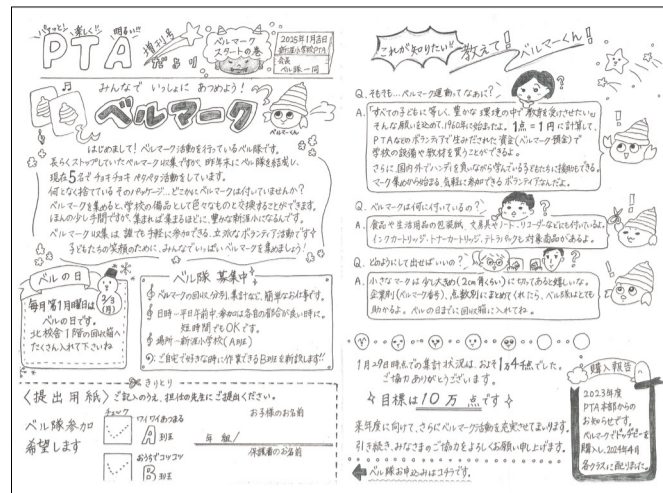 パイッとン 楽しく!! 明るい!!!
PTAだより
増刊号
ベルマーク
スタートの巻
2025年1月吉日
新涯小学校PTA
会長
ベル隊一同
みんなで いっしょに あつめよう!
ベルマーク
ベルマーくん
はじめまして! ベルマーク活動を行っているベル隊です。
長らくストップしていたベルマーク収集ですが、昨年末にベル隊を結成し、
現在5名でチョキチョキペタペタ活動をしています。
何となく捨てているそのパッケージ…どこかにベルマークは付いていませんか?
ベルマークを集めると、学校の備品として色々なものと交換することができます。
ほんの少し手間ですが、集まれば集まるほどに、豊かな新涯小になるんです。
ベルマーク収集は 誰でも手軽に参加できる、立派なボランティア活動です
子どもたちの笑顔のために、みんなでいっぱいベルマークを集めましょう!
ベルの日
毎月第1月曜日は
ベルの日です。
北校舎1階の回収箱へ
たくさん入れて下さいね
2/3
(月)
ベル隊 募集中
ベルマークの回収、分別、集計など、簡単なお仕事です。
日時…平日午前中、参加は各自の都合が良い時に。
短時間でもOKです。
場所…新涯小学校(A班)
ご自宅で好きな時に作業できるB班を新設します!!
きりとり
〈提出用紙〉ご記入のうえ、担任の先生にご提出ください。
ベル隊参加
希望します
チェック
ワイワイあつまる
A班
おうちでコツコツ
B班
お子様のお名前
年 組/
保護者のお名前
これが知りたい!! 教えて! ベルマーくん!
Q. そもそも…ベルマーク運動ってなあに?
A. 「すべての子どもに等しく、豊かな環境の中で教育を受けさせたい」
そんな願いを込めて、1960年に始まったよ。1点=1円に計算して、
PTAなどのボランティアで生みだされた資金(ベルマーク預金)で
学校の設備や教材を買うことができるよ。
さらに国内外でハンディを負いながら学んでいる子どもたちに援助もできる。
マーク集めから始まる、気軽に参加できるボランティアなんだよ。
Q. ベルマークは何についているの?
A. 食品や生活用品の包装紙、文房具やノート、リコーダーなどにも付いているよ。
インクカートリッジ・トナーカートリッジ、テトラパックも対象商品があるよ。
Q. どのようにして出せばいいの?
A. 小さなマークは少し大きめ(2cm角くらい)に切ってあると嬉しいな。
企業別(ベルマーク番号)、点数別にまとめてくれたら、ベル隊はとても
助かるよ。ベルの日までに回収箱に入れてね。
1月29日時点での集計状況は、およそ1万4千点でした。
ご協力ありがとうございます。
目標は10万点です
来年度に向けて、さらにベルマーク活動を充実させてまいります。
引き続き、みなさまのご協力をよろしくお願い申し上げます。
ベル隊お申込みはコチラです。
購入報告
2023年度
PTA本部からの
お知らせです。
ベルマークでドッヂビーを
購入し、2024年4月
各クラスに配りました。